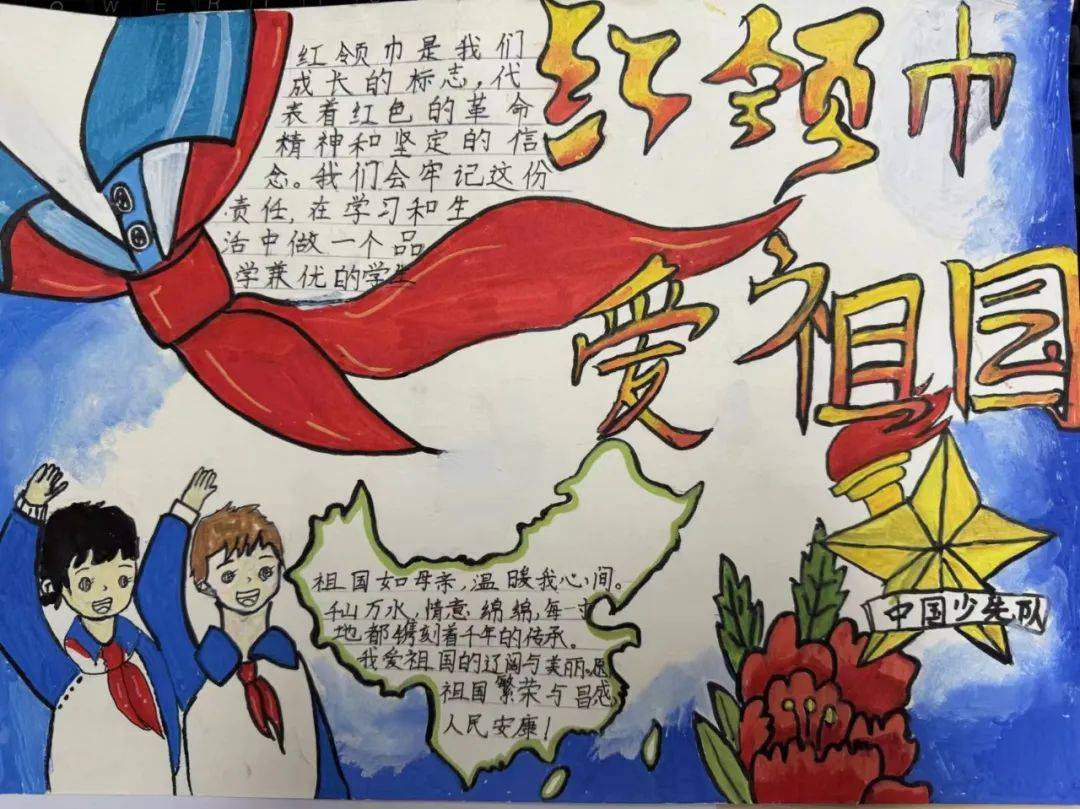 红领巾
爱祖国
红领巾是我们
成长的标志,代
表着红色的革命
精神和坚定的信
念。我们会牢记这份
责任,在学习和生
活中做一个品
学兼优的学生
祖国如母亲,温暖我心间。
千山万水,情意绵绵,每一寸
地,都镌刻着千年的传承。
我爱祖国的辽阔与美丽。愿
祖国繁荣与昌感
人民安康!
中国少先队